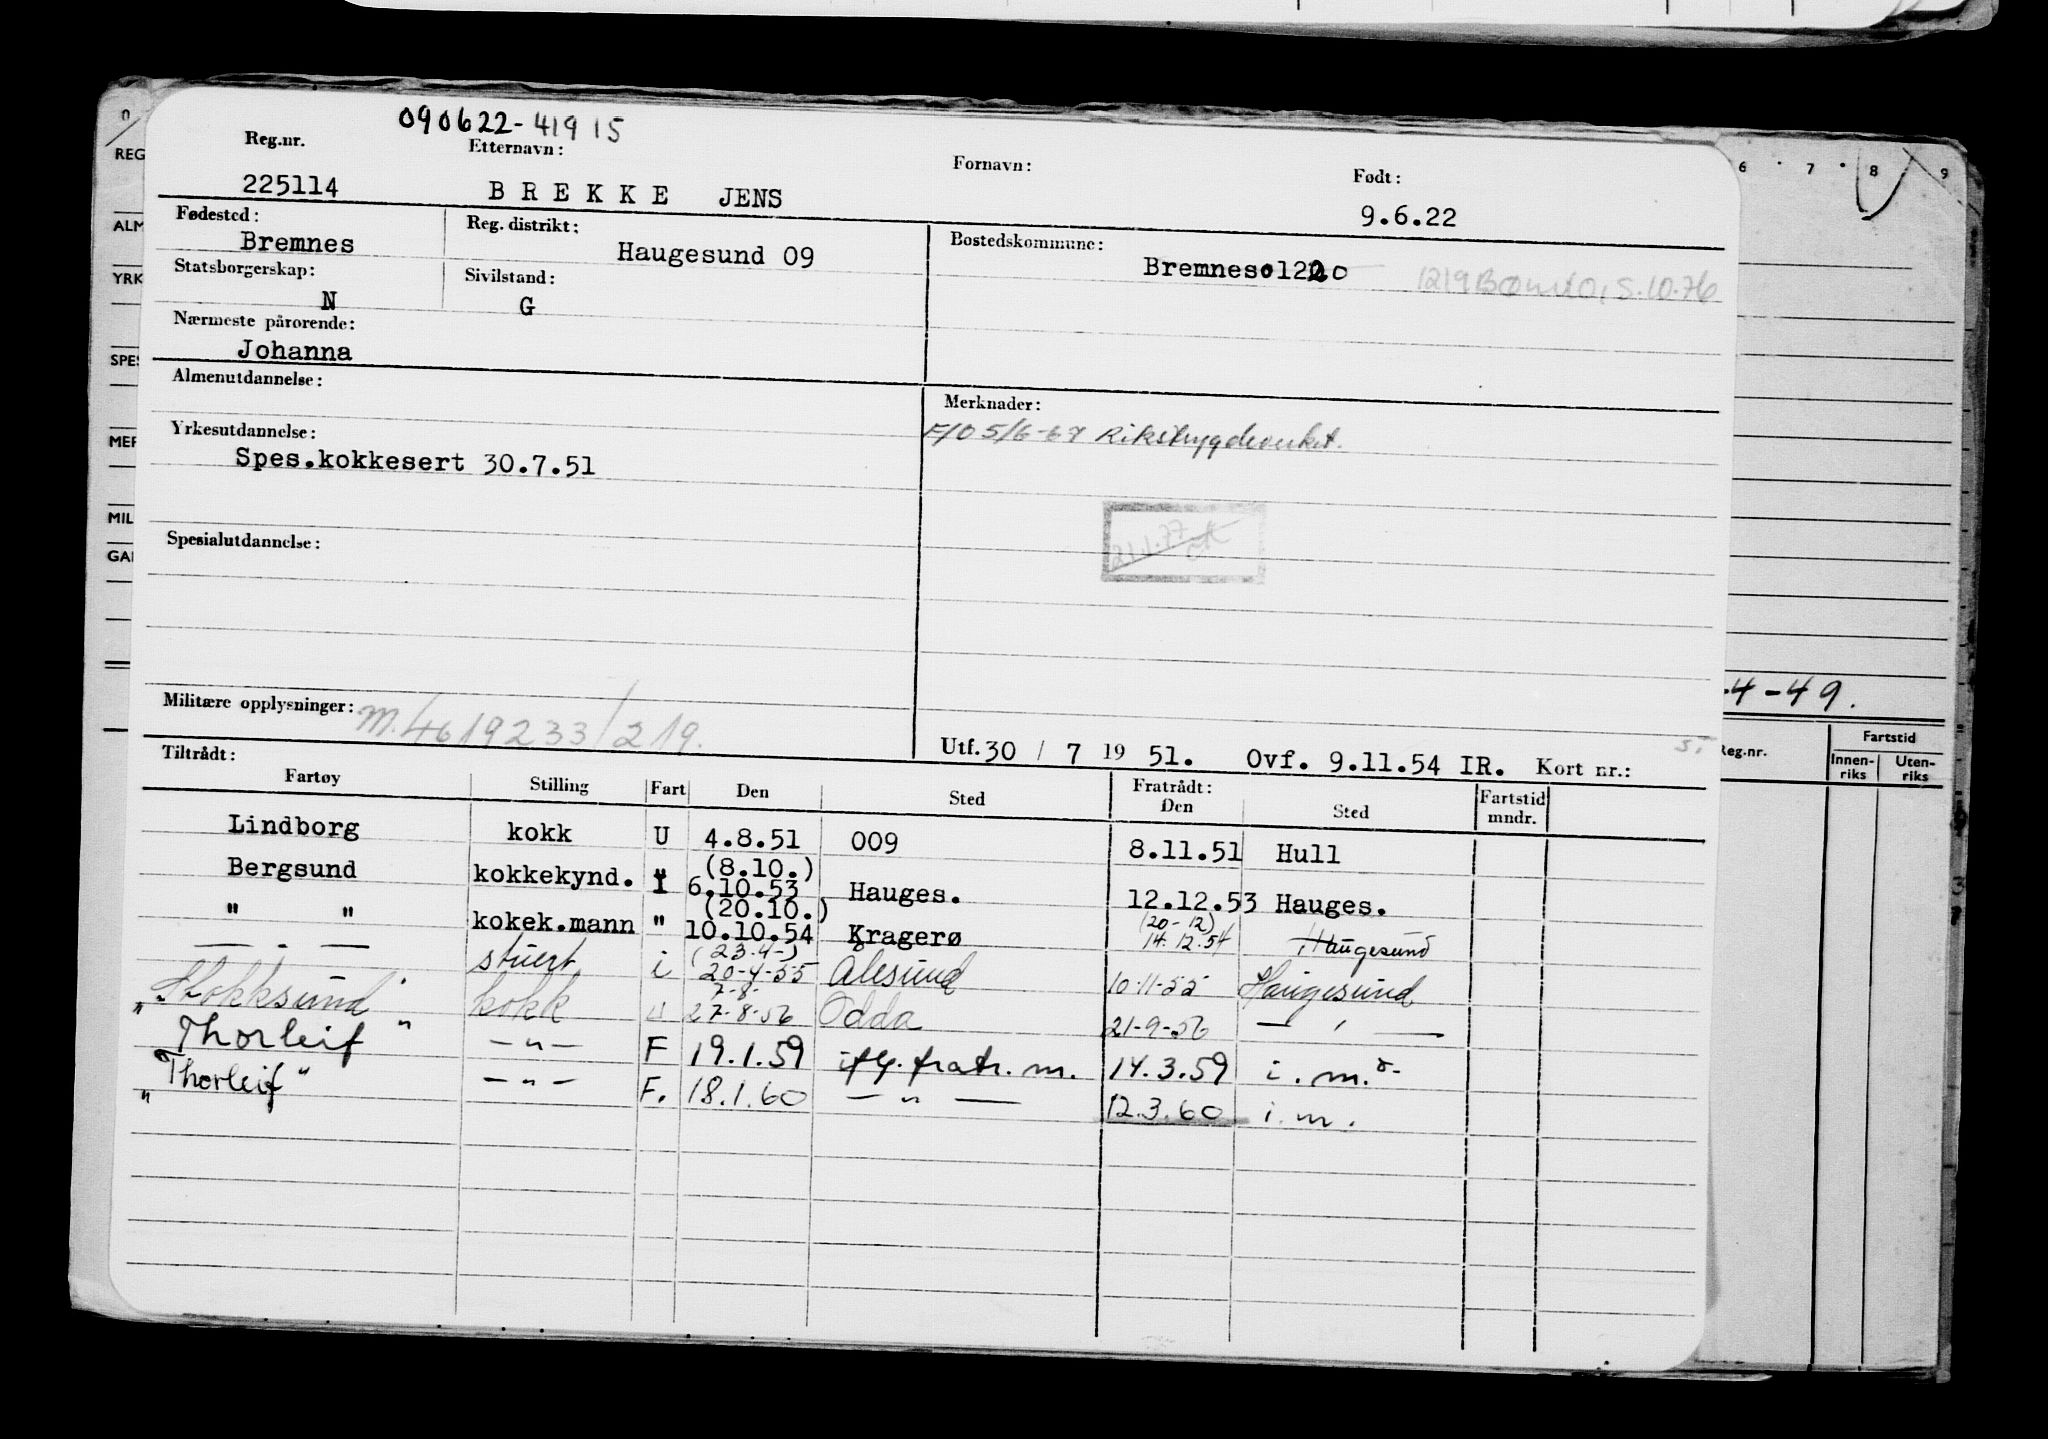 090622-41915
Reg.nr. Etternavn: Fornavn: Født:
225114 BREKKE JENS 9.6.22
Fødested: Reg. distrikt: Bostedskommune:
Bremnes Haugesund 09 Bremnes 1220 1219 Bømlo, 5.10.76
Statsborgerskap: Sivilstand:
N G
Nærmeste pårørende:
Johanna
Almenutdannelse: Merknader:
F/O 5/6-67 Rikstrygdeverket.
Yrkesutdannelse:
Spes.kokkesert 30.7.51
21.1.77
Spesialutdannelse:
Militære opplysninger: M.4619233/219.
Utf. 30 / 7 19 51. Ovf. 9.11.54 IR. Kort nr.:
Tiltrådt: Fratrådt:
Fartøy Stilling Fart Den Sted Den Sted Fartstid mndr.
Lindborg kokk U 4.8.51 009 8.11.51 Hull
Bergsund kokkekynd. (8.10.) 6.10.53 Hauges. 12.12.53 Hauges.
" " kokek.mann " (20.10.) 10.10.54 Kragerø (20-12) 14.12.54 Haugesund
— " — stuert i (23.4-) 20-4-55 Ålesund 10-11-55 Haugesund
"Stokksund" kokk " 7-8- 27-8-56 Odda 21-9-56 — " —
"Thorleif" — " — F 19.1.59 iflg. fratr. m. 14.3.59 i. m.
"Thorleif" — " — F. 18.1.60 — " — 12.3.60 i. m.
0
REG
ALM
YRK
SPES
MER
MIL
GAI
6 7 8 9
-4-49.
Reg.nr. Fartstid
Innen-riks Uten-riks